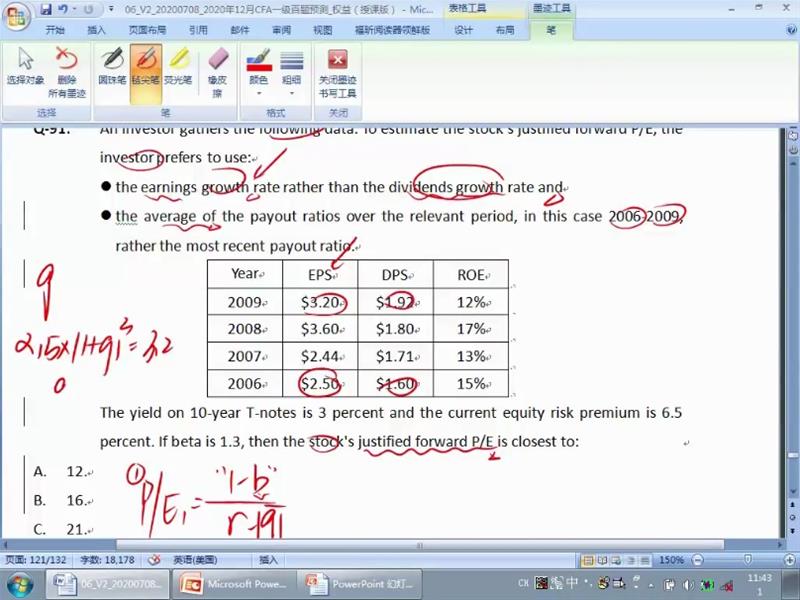 06_V2_20200708_2020年12月CFA一级百题预测_权益（授课版） - Mic...
表格工具
墨迹工具
开始 插入 页面布局 引用 邮件 审阅 视图 福昕阅读器领鲜版 设计 布局 笔
选择对象 删除所有墨迹 圆珠笔 毡尖笔 荧光笔 橡皮擦 颜色 粗细 关闭墨迹书写工具
选择 笔 格式 关闭
Q-91. An investor gathers the following data. To estimate the stock's justified forward P/E, the
investor prefers to use:
● the earnings growth rate rather than the dividends growth rate and
● the average of the payout ratios over the relevant period, in this case 2006-2009,
rather the most recent payout ratio.
Year EPS DPS ROE
2009 $3.20 $1.92 12%
2008 $3.60 $1.80 17%
2007 $2.44 $1.71 13%
2006 $2.50 $1.60 15%
g
The yield on 10-year T-notes is 3 percent and the current equity risk premium is 6.5
percent. If beta is 1.3, then the stock's justified forward P/E is closest to:
A. 12.
B. 16.
C. 21.
① P/E₁ = "1-b"
r-g
页面: 121/132 字数: 18,178 英语(美国) 插入 150%
06_V2_20200708... Microsoft Powe... PowerPoint 幻灯... CH 中 11:43